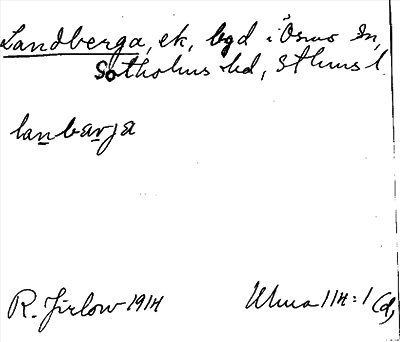 Landberga, ek, bgd i Ösmo sn,
Sotholms hd, Sthms l.
lanbarja
R. Jirlow 1914
Ulma 114:1 (d)